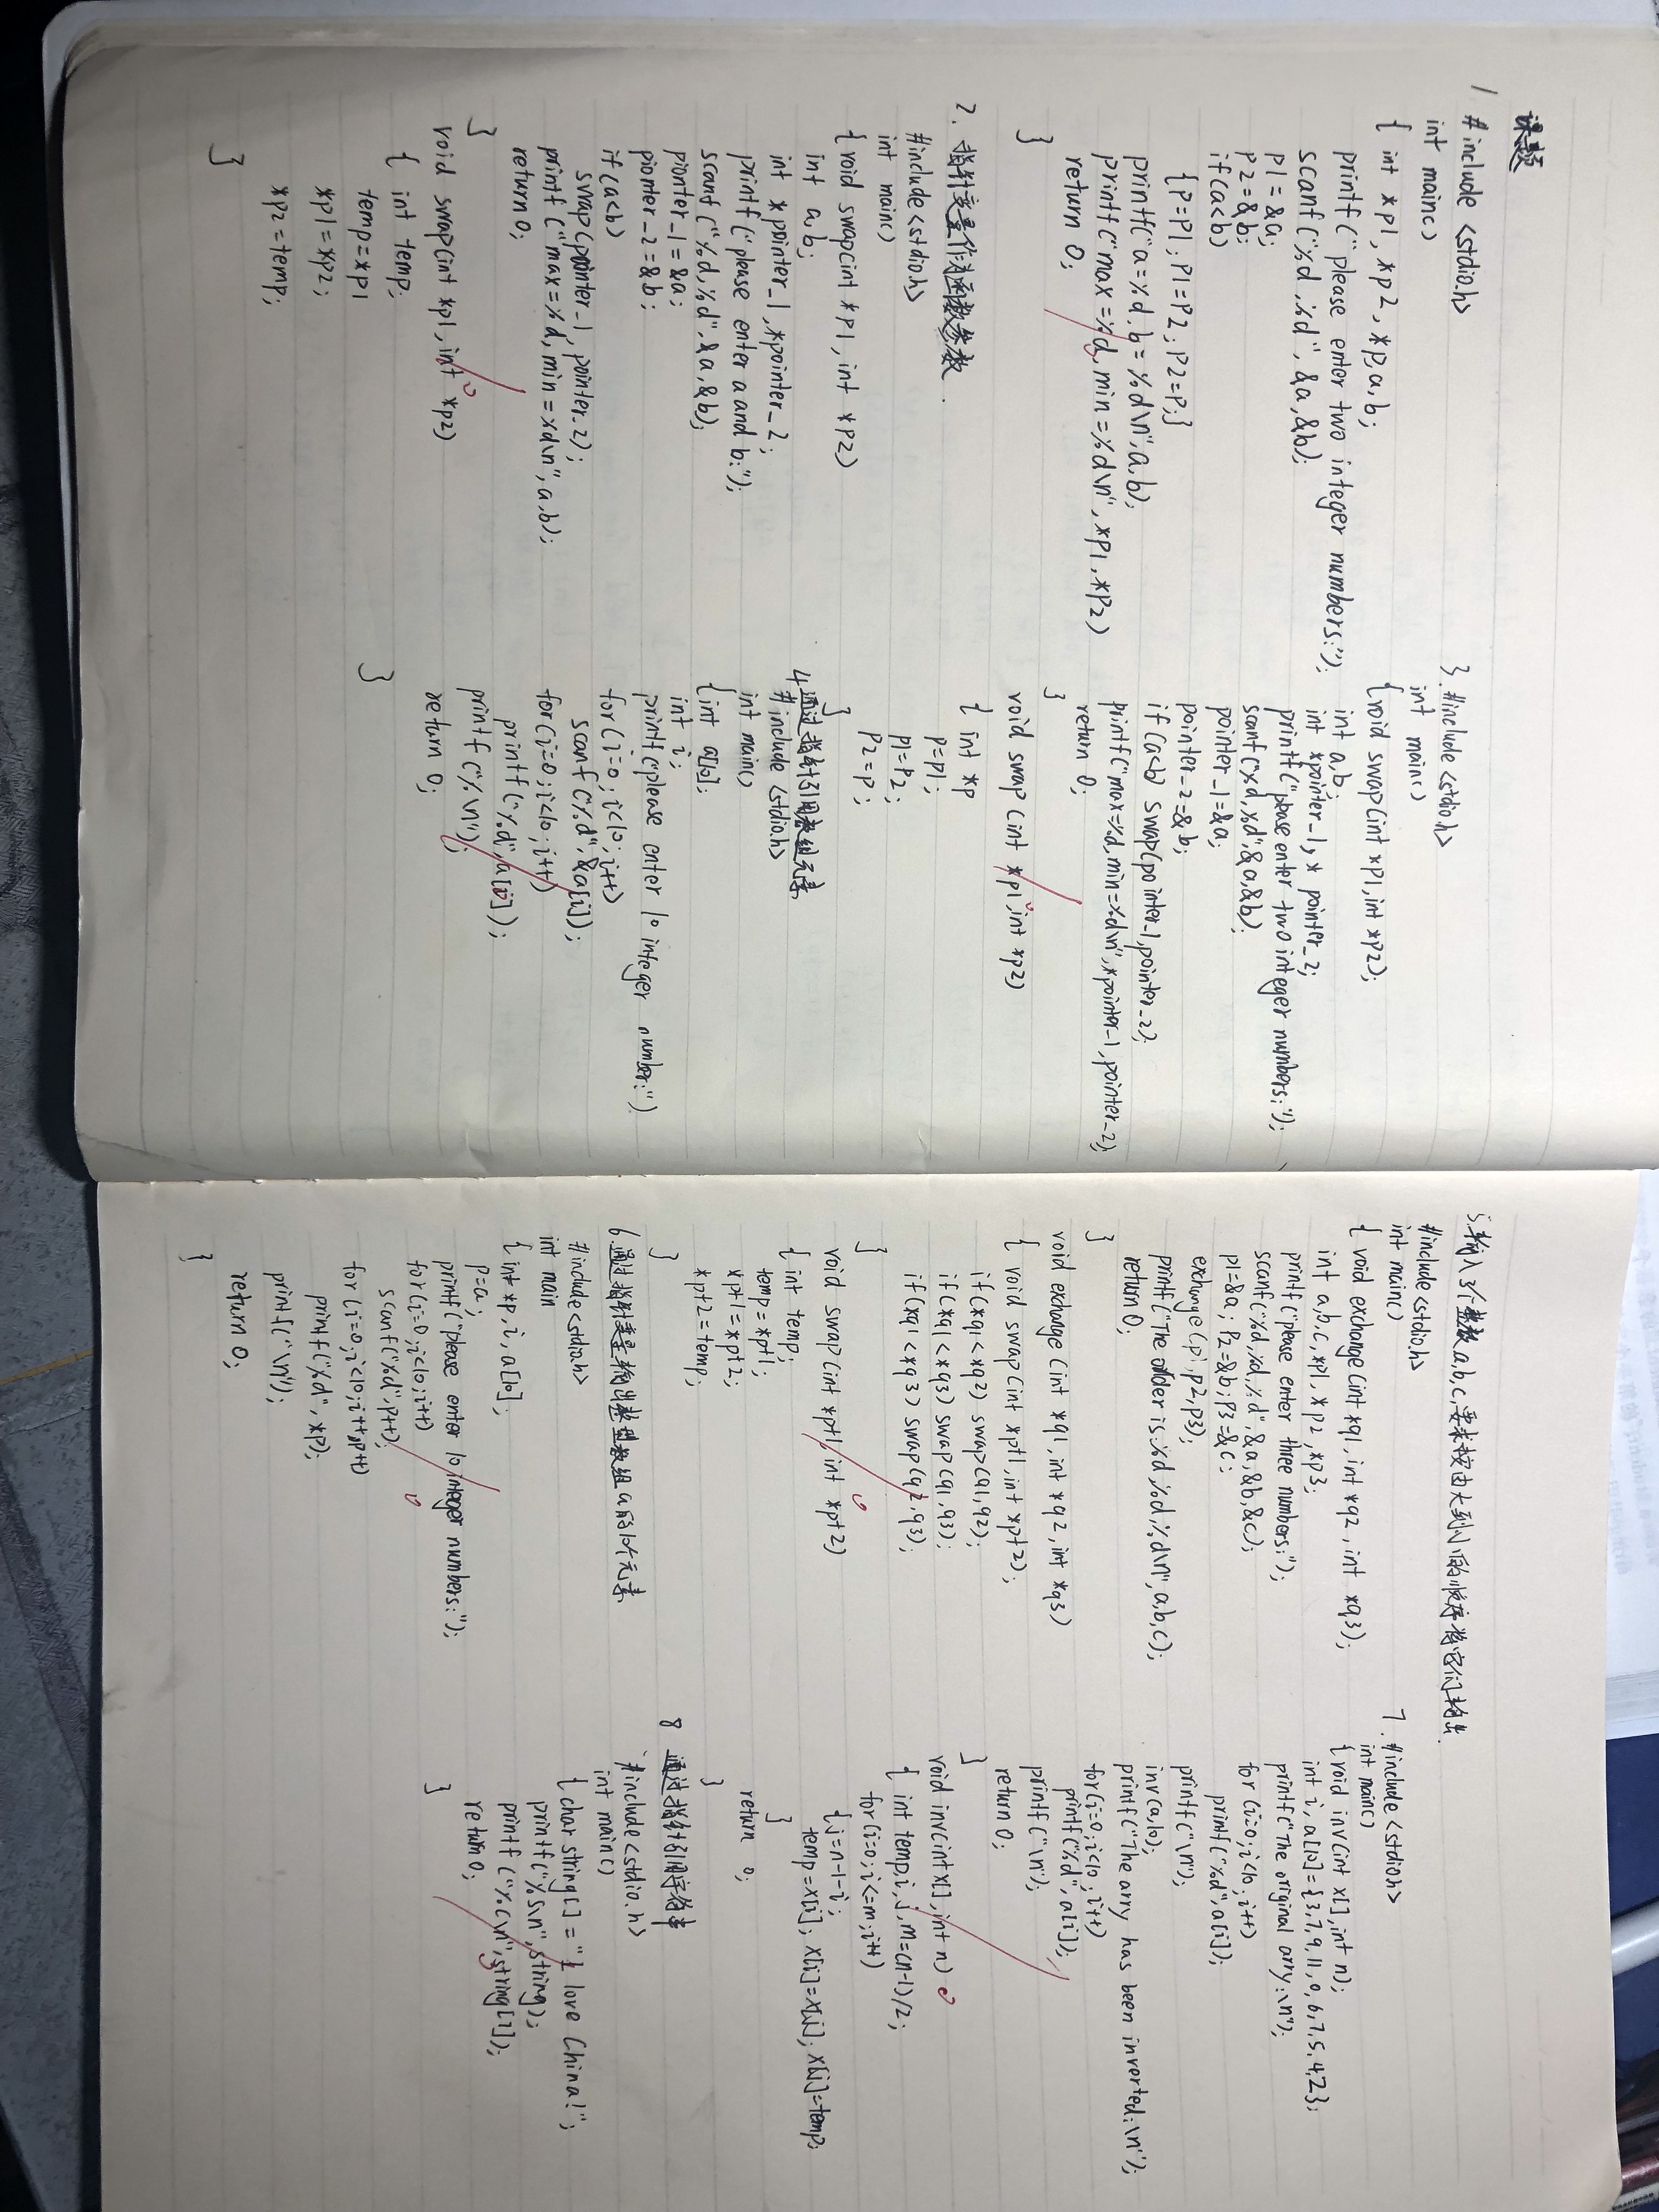 课题
1. #include <stdio.h>
int main()
{ int *p1, *p2, *p, a, b;
printf("please enter two integer numbers:");
scanf("%d,%d", &a,&b);
p1=&a;
p2=&b;
if(a<b)
{p=p1; p1=p2; p2=p;}
printf("a=%d,b=%d\n",a,b);
printf("max=%d,min=%d\n",*p1,*p2)
return 0;
}
2. 指针变量作为函数参数.
#include<stdio.h>
int main()
{void swap(int *p1, int *p2)
int a,b;
int *pointer_1,*pointer_2;
printf("please enter a and b:");
scanf("%d,%d",&a,&b);
pointer-1=&a;
pointer-2=&b;
if(a<b)
swap(pointer-1,pointer-2);
printf("max=%d,min=%d\n",a,b);
return 0;
}
void swap(int *p1, int *p2)
{ int temp;
temp=*p1
*p1=*p2;
*p2=temp;
}
3. #include<stdio.h>
int main()
{void swap(int *p1,int *p2);
int a,b;
int *pointer-1,* pointer_2;
printf("please enter two integer numbers:");
scanf("%d,%d",&a,&b);
pointer-1=&a;
pointer-2=&b;
if(a<b) swap(pointer-1,pointer-2);
printf("max=%d,min=%d\n",*pointer-1,pointer_2);
return 0;
}
void swap(int *p1,int *p2)
{ int *p
p=p1;
p1=p2;
p2=p;
}
4. 通过指针引用数组元素
#include <stdio.h>
int main()
{int a[10];
int i;
printf("please enter 10 integer number:")
for(i=0;i<10;i++)
scanf("%d",&a[i]);
for(i=0;i<10;i++)
printf("%d",a[i]);
printf("%\n");
return 0;
}
5.输入3个整数a,b,c,要求按由大到小的顺序将它们输出
#include<stdio.h>
int main()
{ void exchange(int *q1, int *q2, int *q3);
int a,b,c,*p1,*p2,*p3;
printf("please enter three numbers:");
scanf("%d,%d,%d",&a,&b,&c);
p1=&a; p2=&b; p3=&c;
exchange(p1,p2,p3);
printf("The older is:%d,%d,%d\n",a,b,c);
return 0;
}
void exchange(int *q1,int *q2,int *q3)
{ void swap(int *pt1,int *pt2);
if(*q1<*q2) swap(q1,q2);
if(*q1<*q3) swap(q1,q3);
if(*q1<*q3) swap(q2,q3);
}
void swap(int *pt1,int *pt2)
{ int temp;
temp=*pt1;
*pt1=*pt2;
*pt2=temp;
}
6.通过指针变量输出整型数组a的10个元素
#include<stdio.h>
int main
{int *p,i,a[10];
p=a;
printf("please enter 10 integer numbers:");
for(i=0;i<10;i++)
scanf("%d",p++);
for(i=0;i<10;i++,p++)
printf("%d",*p);
printf("\n");
return 0;
{
7. #include<stdio.h>
int main()
{void inv(int x[],int n);
int i,a[10]={3,7,9,11,0,6,7,5,4,2};
printf("The original arry:\n");
for(i=0;i<10;i++)
printf("%d",a[i]);
printf("\n");
inv(a,10);
printf("The arry has been inverted:\n");
for(i=0;i<10;i++)
printf("%d",a[i]);
printf("\n");
return 0;
}
void inv(int x[],int n)
{ int temp,i,j,m=(n-1)/2;
for(i=0;i<=m;i++)
{j=n-1-i;
temp=x[i]; x[i]=x[j]; x[j]=temp;
}
return 0;
}
8 通过指针引用字符串
#include<stdio.h>
int main()
{ char string[]="I love China!";
printf("%s\n",string);
printf("%c\n",string[7]);
return 0;
}